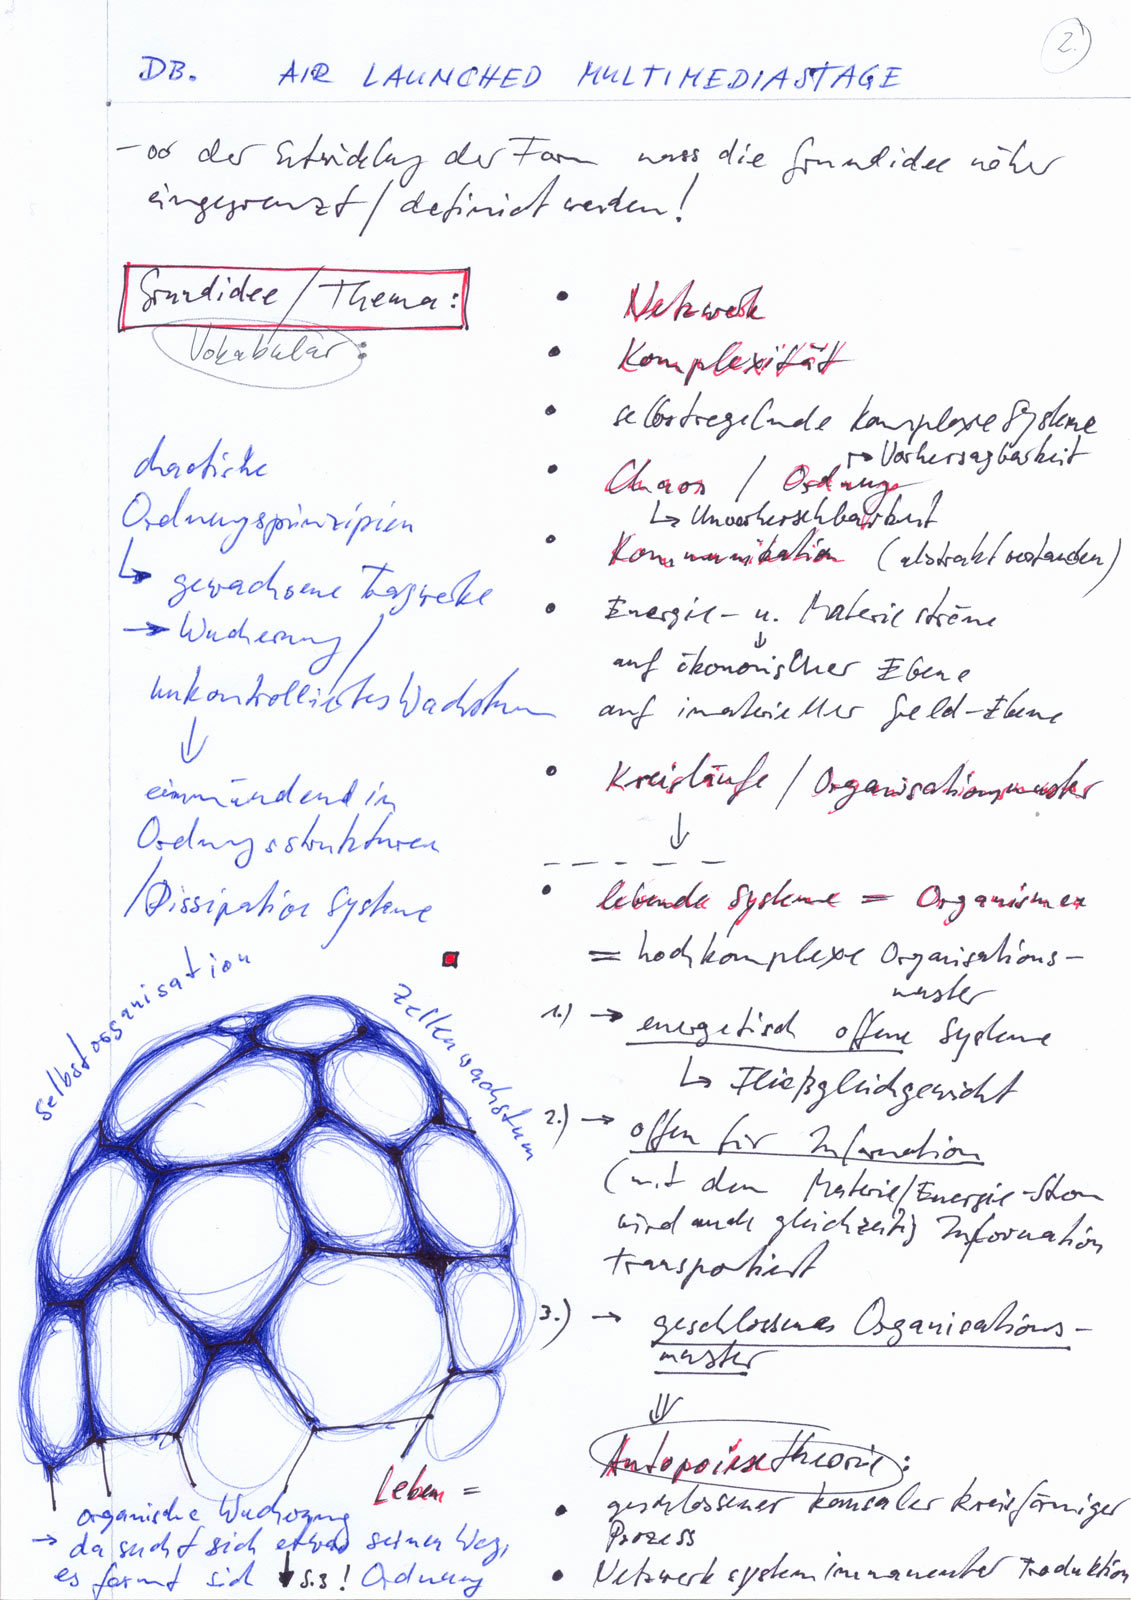 2.
DB. AIR LAUNCHED MULTIMEDIASTAGE
der Entwicklung der Form muss die Grundidee näher
eingegrenzt / definiert werden!
Grundidee / Thema:
Vokabulär:
chaotische
Ordnungsprinzipien
↳ gewachsene Tragwerke
→ Wucherung /
unkontrolliertes Wachstum
↓
einmündend in
Ordnungsstrukturen
/ Dissipative Systeme
selbstorganisation
Zellenwachstum
organische Wucherung
→ da sucht sich etwas seinen Weg,
es formt sich ↓ S.3! Ordnung
Leben =
• Netzwerk
• Komplexität
• selbstregelnde komplexe Systeme
↦ Vorhersagbarkeit
• Chaos / Ordnung
↳ Unvorherschbarkeit
• Kommunikation (abstrakt verstanden)
• Energie- u. Materieströme
↓
auf ökonomischer Ebene
auf imaterieller Geld-Ebene
• Kreisläufe / Organisationsmuster
↓
• lebende Systeme = Organismen
= hochkomplexe Organisations-
muster
1.) → energetisch offene Systeme
↳ Fließgleichgewicht
2.) → offen für Information
(mit dem Materie/Energie-Strom
wird auch gleichzeitig Information
transportiert
3.) → geschlossenes Organisations-
muster
⇓
Autopoiese theorie:
• geschlossener kausaler kreisförmiger
Prozess
• Netzwerk systemimmanenter Produktion